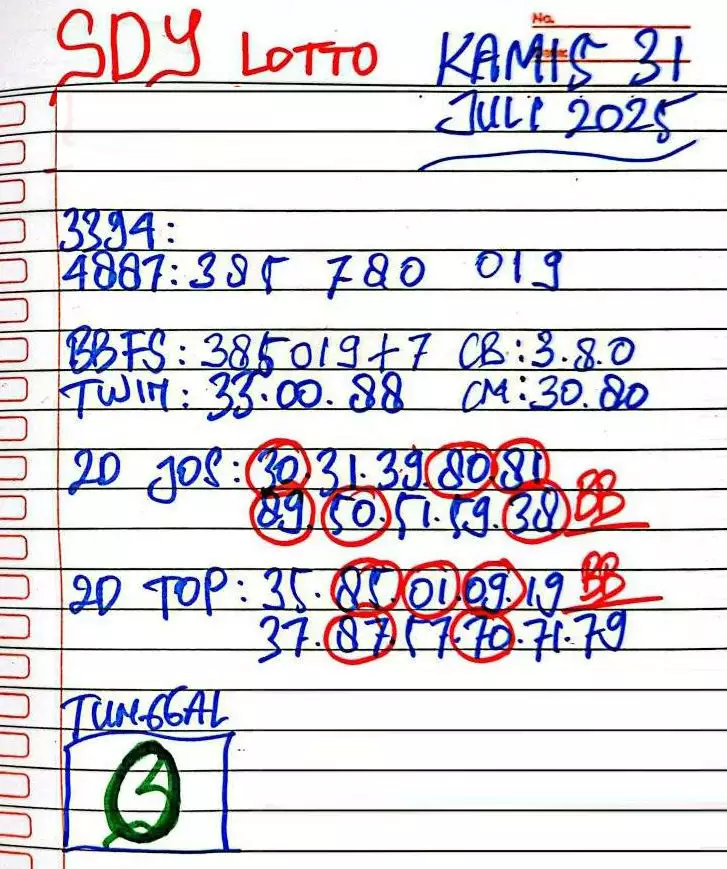 No.
SDY LOTTO
KAMIS 31
JULI 2025
3394:
4887: 385 780 019
BBFS: 385019+7 CB: 3.8.0
TWIN: 33.00.88 CM: 30.80
2D JOS: 30.31.39.80.81
89.50.51.59.38 BB
2D TOP: 35.85.01.09.19 BB
37.87.57.70.71.79
TUNGGAL
3